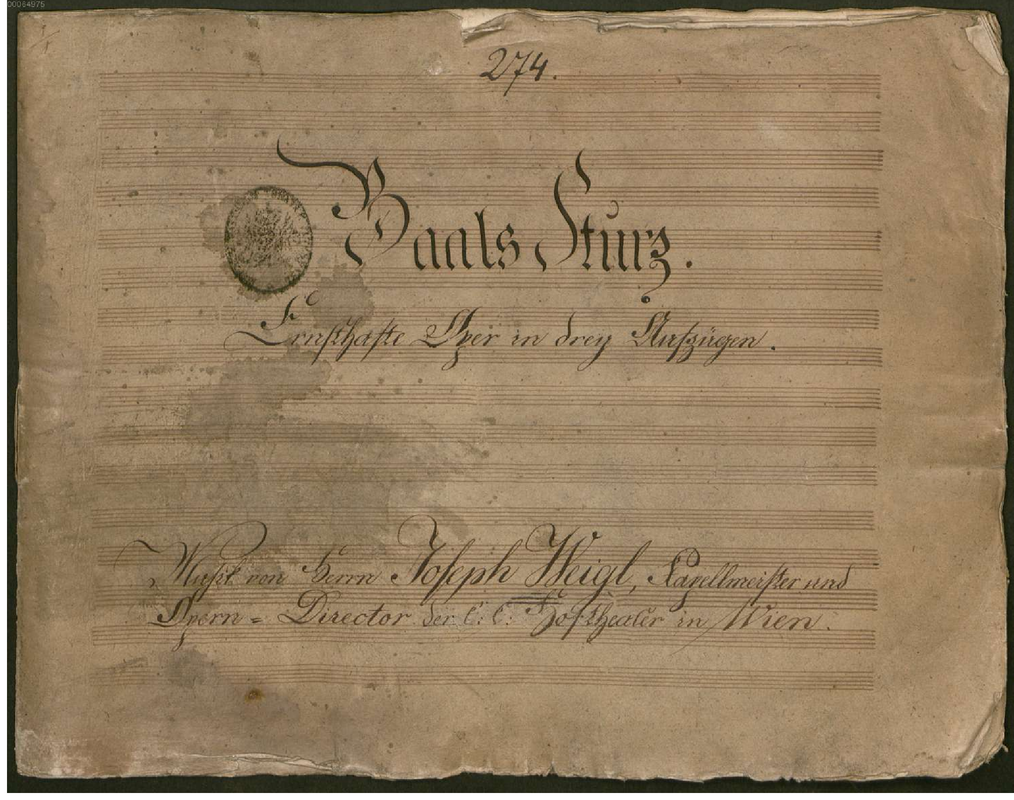 00064975
274.
Baals Sturz.
Ernsthafte Oper in drey Aufzügen.
Musik von Herrn Joseph Weigl, Kapellmeister und
Opern = Director der k: k: Hoftheater in Wien.